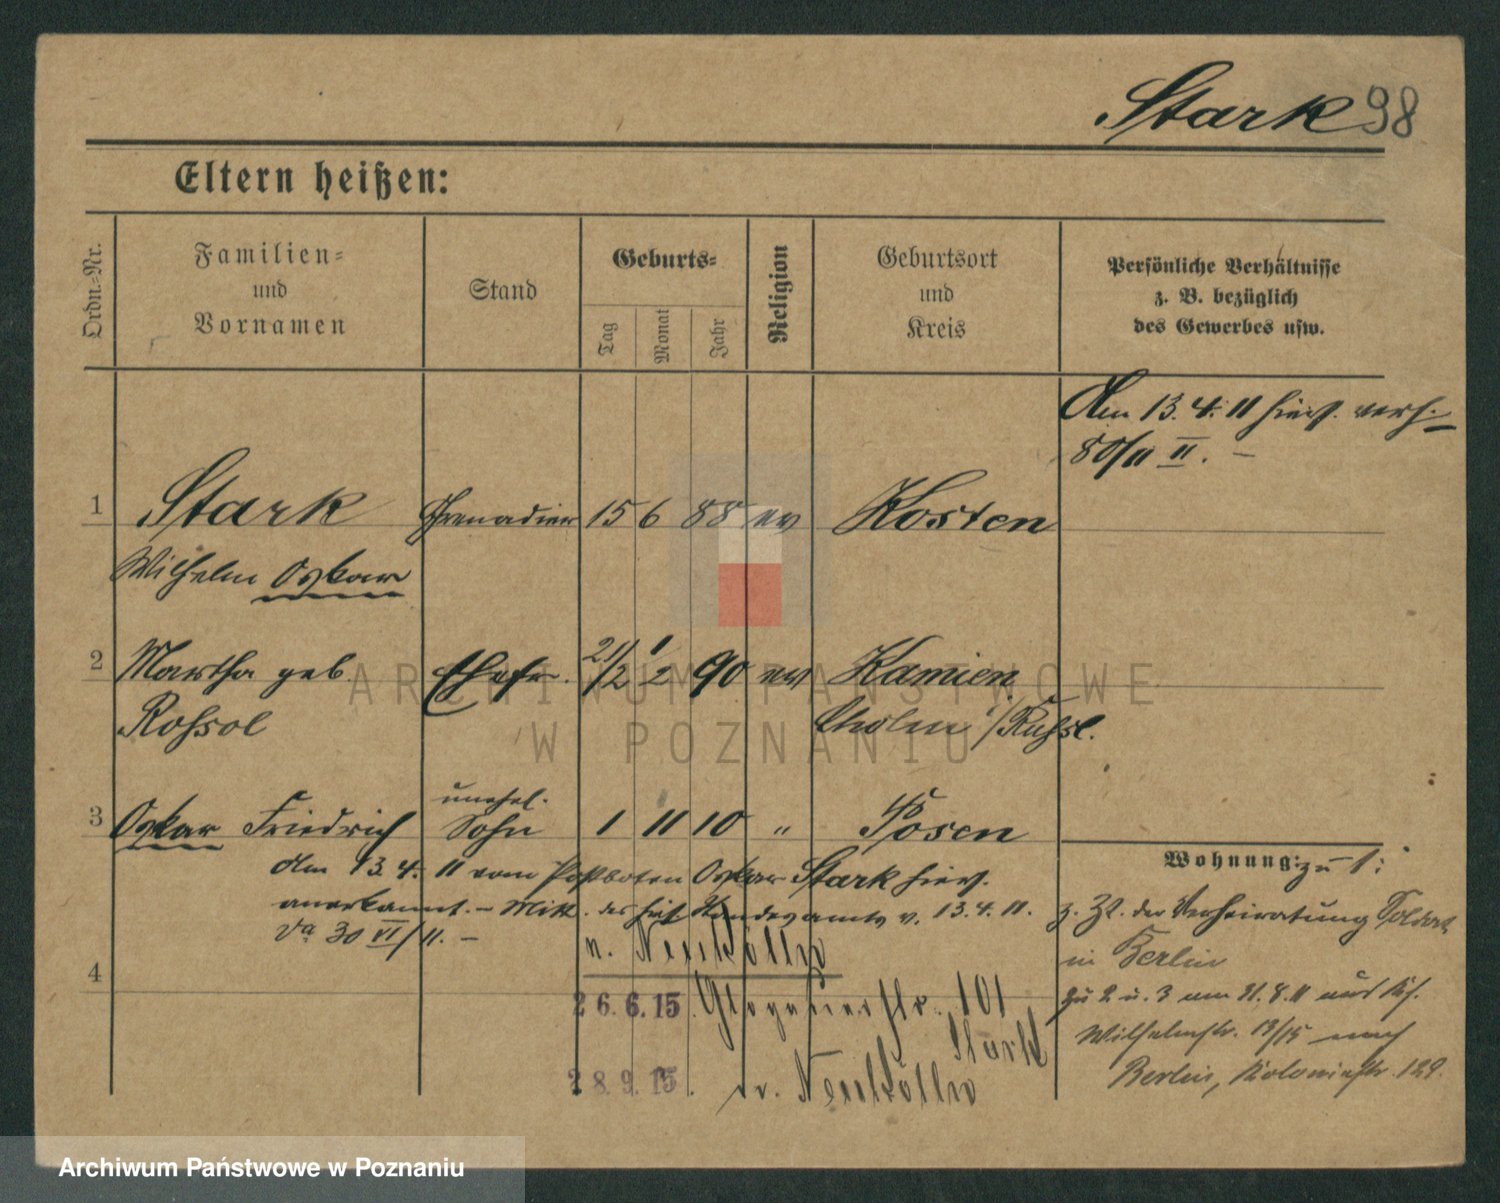 Stark 98
Eltern heißen:
Ordn.-Nr.
Familien-
und
Vornamen
Stand
Geburts-
Tag
Monat
Jahr
Religion
Geburtsort
und
Kreis
Persönliche Verhältnisse
z. B. bezüglich
des Gewerbes usw.
Am 13.4.11 hier verh.
80/11 II. –
1 Stark Grenadier 15 6 88 ev Kosten
Wilhelm Oskar
2 Martha geb Ehefr. 90 ev Kamien
Rossol Cholm i/Russl.
unehel.
3 Oskar Friedrich Sohn 1 11 10 " Posen
Am 13.4.11 vom Postboten Oskar Stark hier
anerkannt. – Mitt. des hies Standesamts v. 13.4.11.
30 VI/11. –
4
n. Neukölln
26.6.15. Glogauerstr. 101
Stark
28.9.15. v. Neukölln
Wohnung: zu 1:
z. Zt. der Verheiratung Soldat
in Berlin
zu 2 u. 3 am 31.8.11
Wilhelmstr. 13/15 nach
Berlin, Koloniestr. 129.
ARCHIWUM PAŃSTWOWE
W POZNANIU
Archiwum Państwowe w Poznaniu